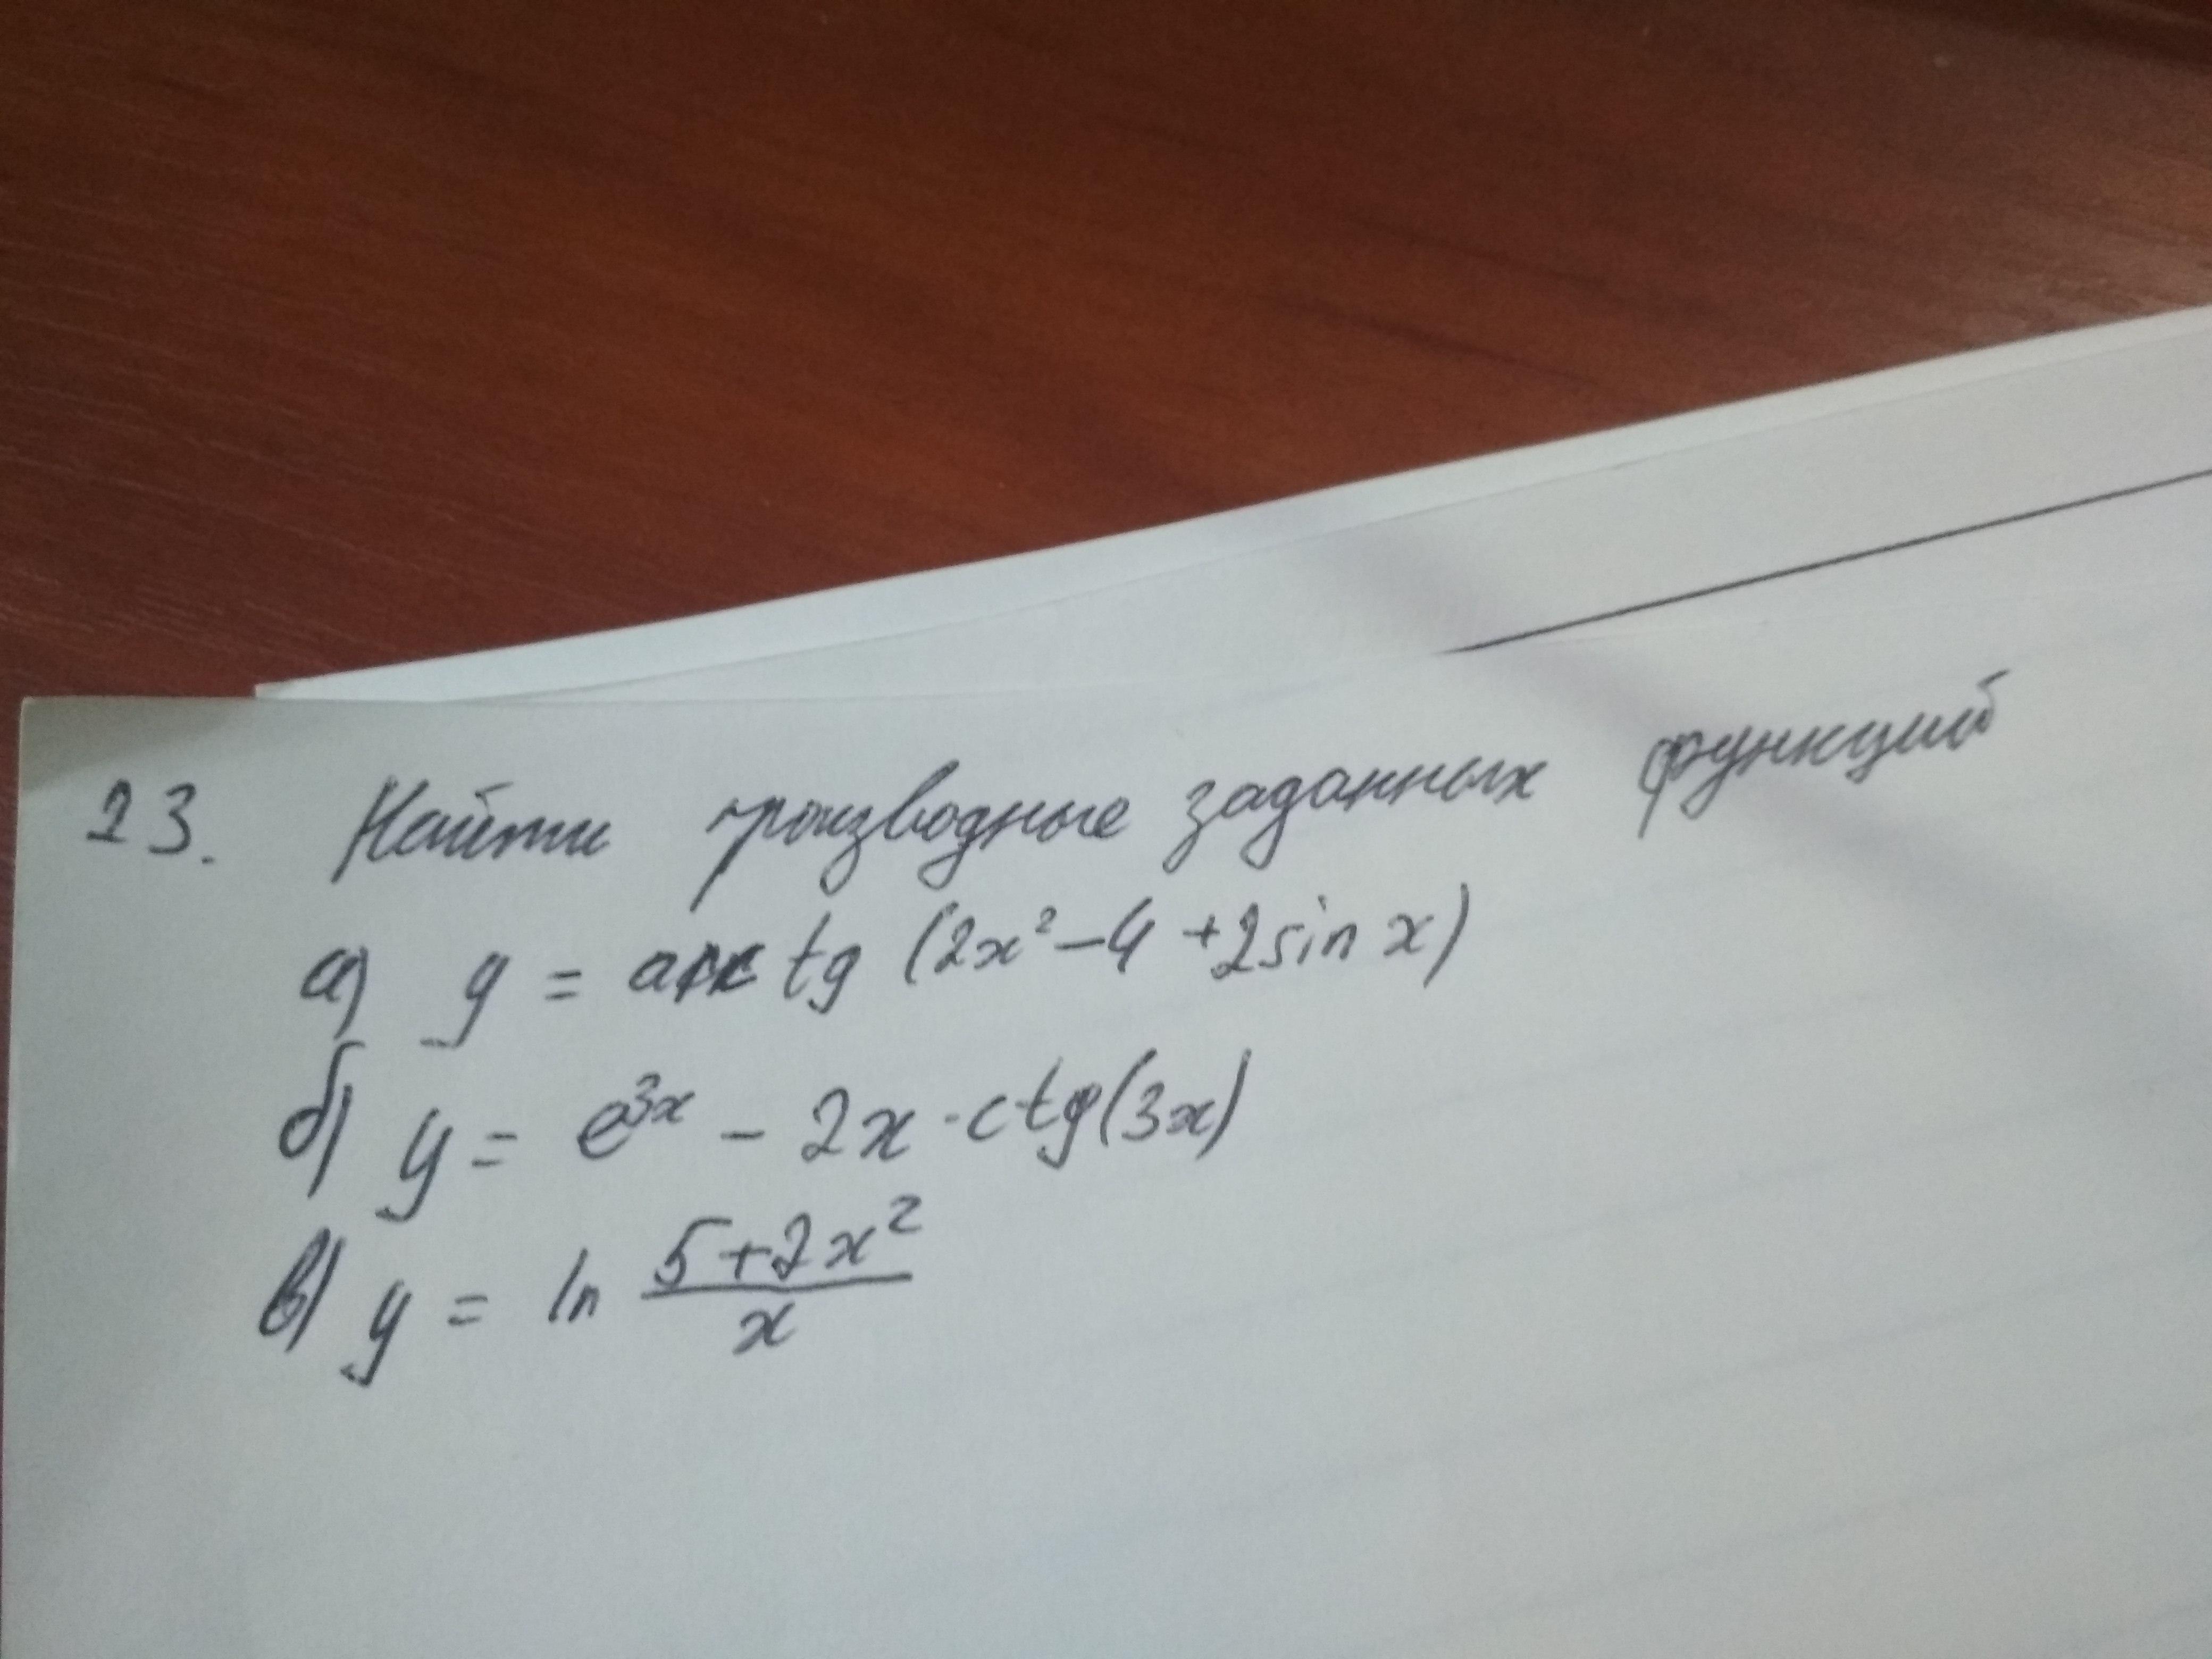 23. Найти производные заданных функций
а) y = arctg (2x² - 4 + 2sin x)
б) y = e³ˣ - 2x · ctg(3x)
в) y = ln (5+2x²)/x